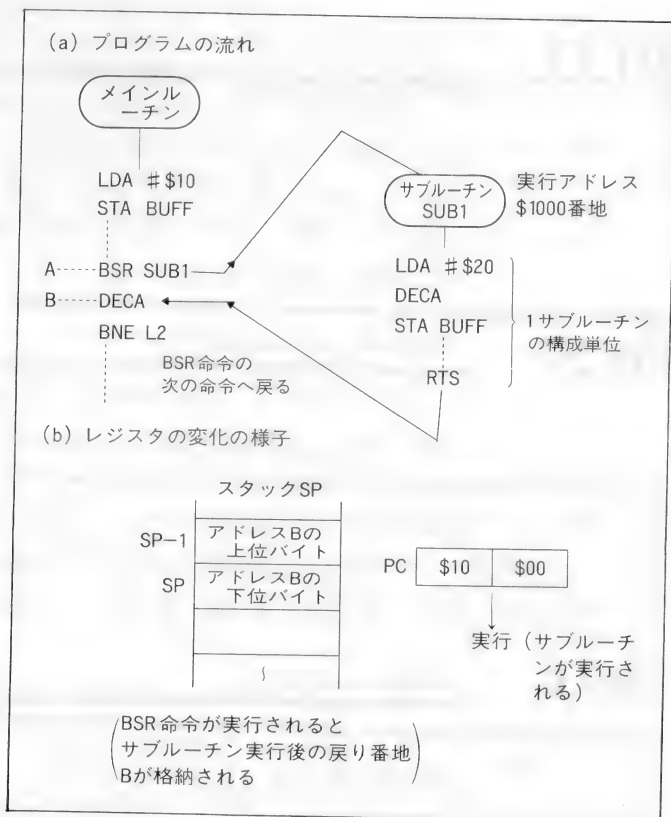 (a) プログラムの流れ
メインル
ーチン
LDA #$10
STA BUFF
A BSR SUB1
B DECA
BNE L2
BSR命令の
次の命令へ戻る
サブルーチン
SUB1
実行アドレス
$1000番地
LDA #$20
DECA
STA BUFF
RTS
1サブルーチン
の構成単位
(b) レジスタの変化の様子
スタックSP
SP−1 アドレスBの
上位バイト
SP アドレスBの
下位バイト
〜
PC $10 $00
実行(サブルーチ
ンが実行さ
れる)
(BSR命令が実行されると
サブルーチン実行後の戻り番地
Bが格納される)